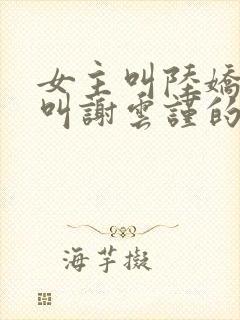 女主叫陸嬌
叫謝雲謹的
海芋擬